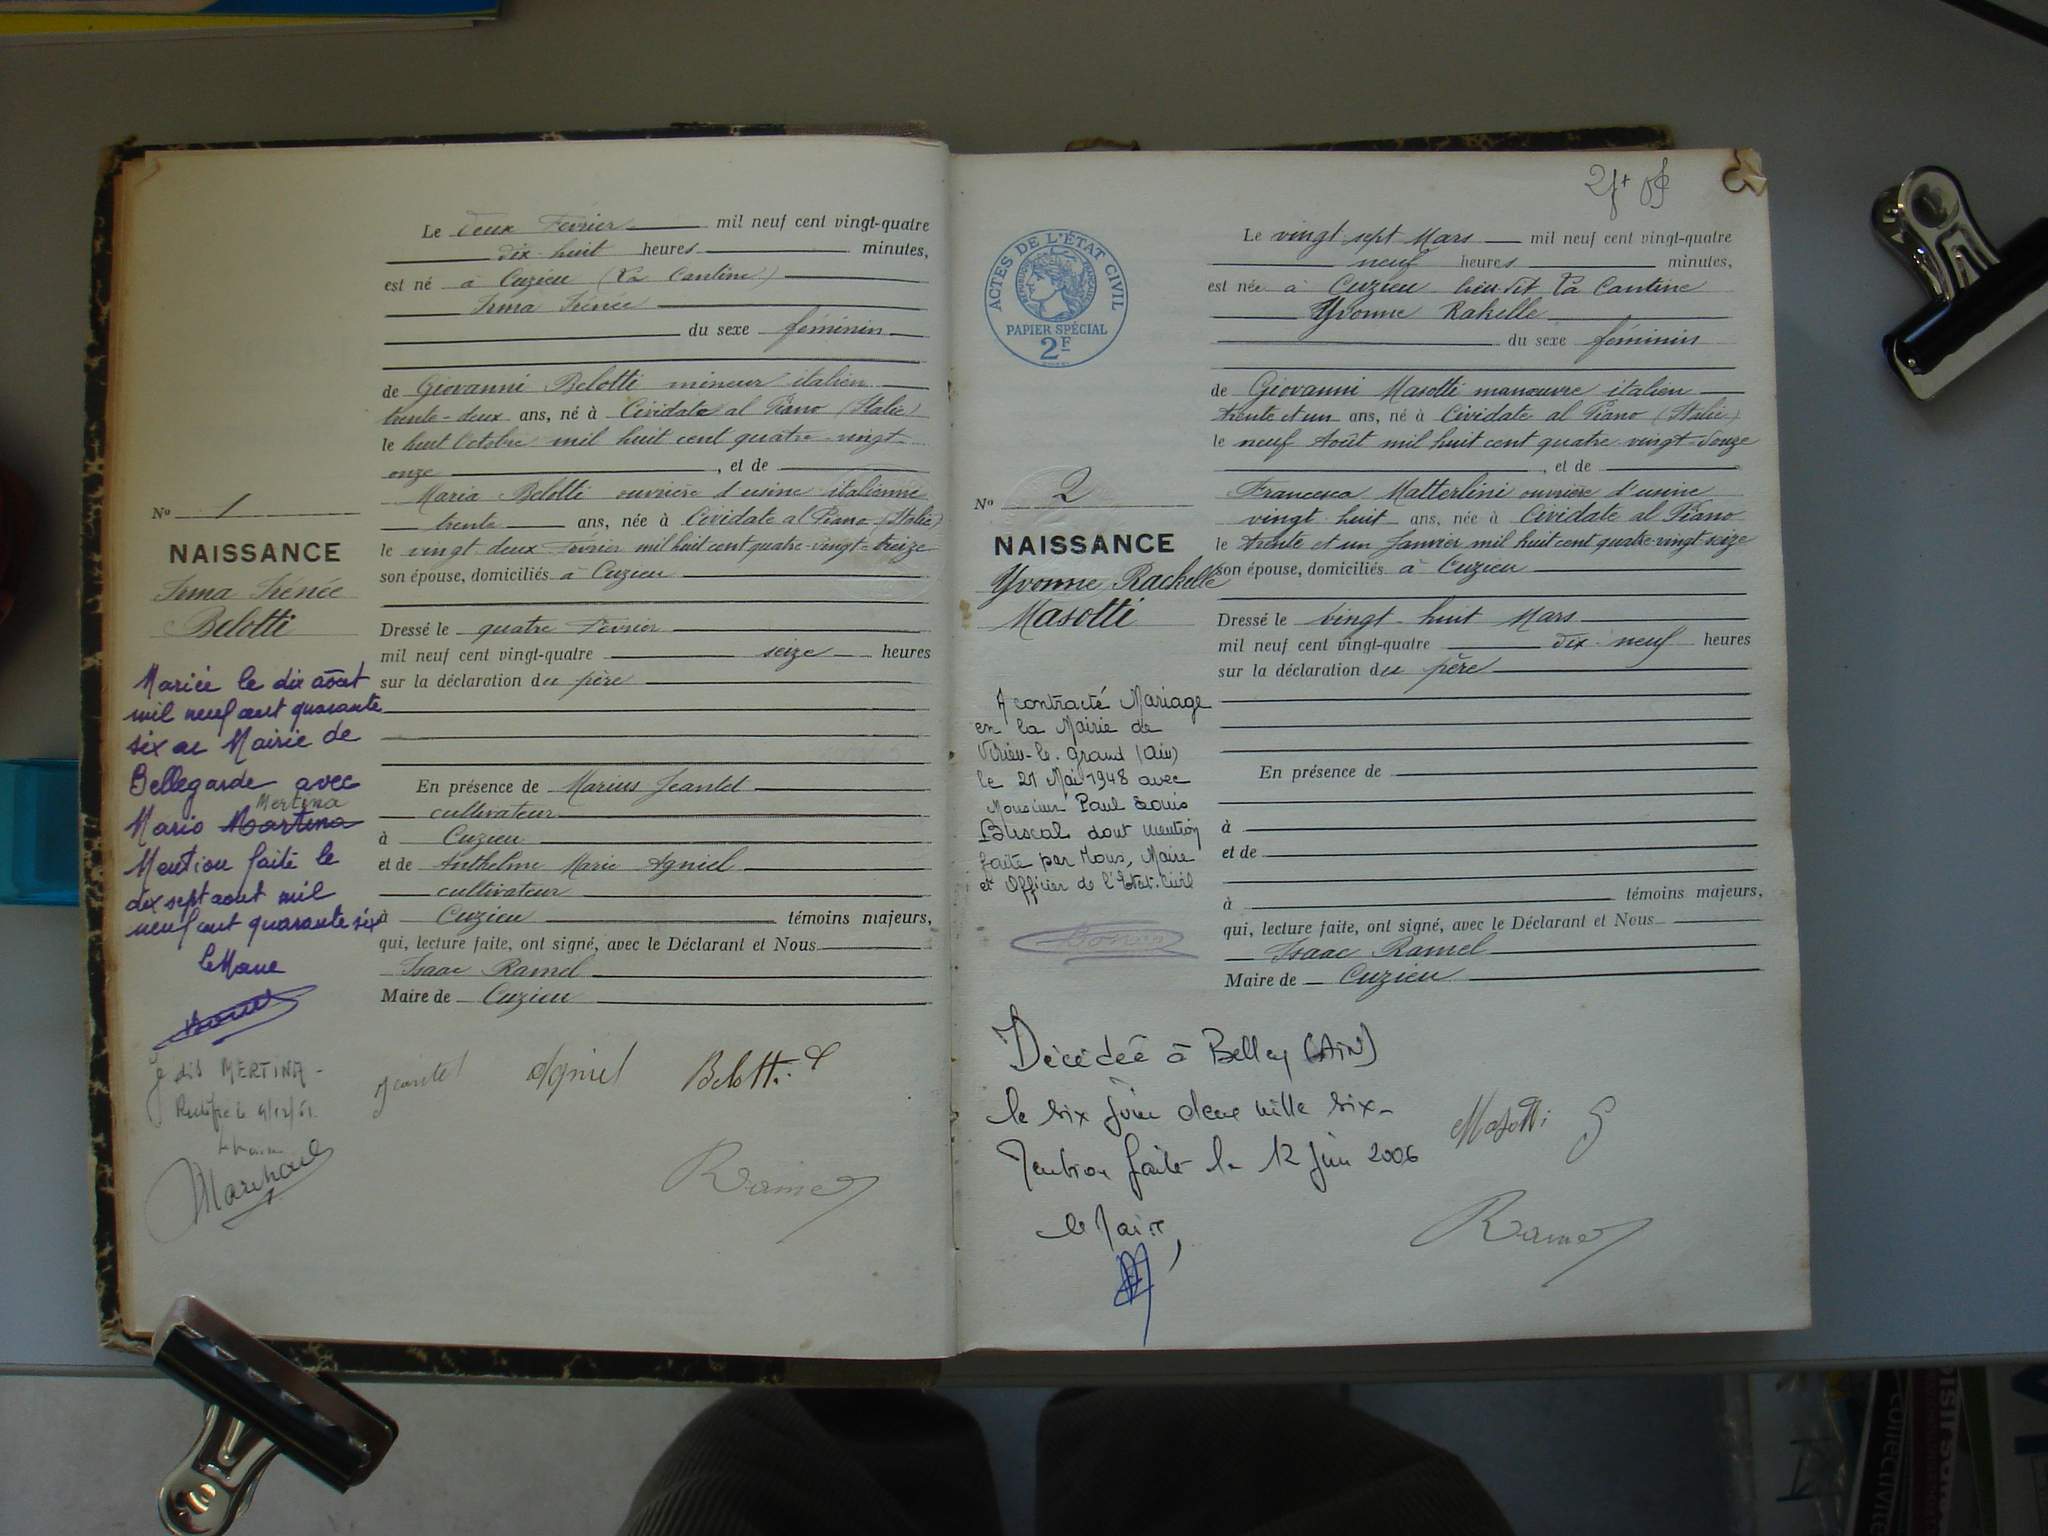 Le deux Février mil neuf cent vingt-quatre
dix-huit heures minutes,
est né à Cuzieu (La Cantine)
Irma Irénée
du sexe féminin
de Giovanni Belotti mineur italien
trente-deux ans, né à Cividate al Piano (Italie)
le huit Octobre mil huit cent quatre-vingt-
onze, et de
Maria Belotti ouvrière d'usine italienne
trente ans, née à Cividate al Piano (Italie)
le vingt deux Février mil huit cent quatre-vingt-treize
son épouse, domiciliés à Cuzieu
Dressé le quatre Février
mil neuf cent vingt-quatre seize heures
sur la déclaration du père
En présence de Marius Jeantet
cultivateur
à Cuzieu
et de Anthelme Marie Agniel
cultivateur
à Cuzieu témoins majeurs,
qui, lecture faite, ont signé, avec le Déclarant et Nous
Isaac Ramel
Maire de Cuzieu
Jeantet Agniel Belotti
Ramel
No 1
NAISSANCE
Irma Irénée
Belotti
Mariée le dix août
mil neuf cent quarante
six en Mairie de
Bellegarde avec
Mertina
Mario Martina
Mention faite le
dix sept aout mil
neuf cent quarante six
le Maire
Je dis MERTINA -
Rectifié le 9/12/61.
Le Maire
Marchand
ACTES DE L'ÉTAT CIVIL
PAPIER SPÉCIAL
2F
Le vingt sept Mars mil neuf cent vingt-quatre
neuf heures minutes,
est née à Cuzieu lieu-dit La Cantine
Yvonne Rakelle
du sexe féminin
de Giovanni Masotti manœuvre italien
trente et un ans, né à Cividate al Piano (Italie)
le neuf Août mil huit cent quatre-vingt-douze
, et de
Francesca Matterlini ouvrière d'usine
vingt huit ans, née à Cividate al Piano
le trente et un Janvier mil huit cent quatre-vingt-seize
son épouse, domiciliés à Cuzieu
Dressé le vingt-huit Mars
mil neuf cent vingt-quatre dix-neuf heures
sur la déclaration du père
En présence de
à
et de
à témoins majeurs,
qui, lecture faite, ont signé, avec le Déclarant et Nous
Isaac Ramel
Maire de Cuzieu
No 2
NAISSANCE
Yvonne, Rackelle
Masotti
A contracté Mariage
en la Mairie de
Virieu-le-Grand (Ain)
le 21 Mai 1948 avec
Monsieur Paul Louis
dont mention
faite par Nous, Maire
et Officier de l'Etat-Civil
Décédée à Belley (AIN)
le six juin deux mille six-
Mention faite le 12 juin 2006
Le Maire,
Masotti G
Ramel